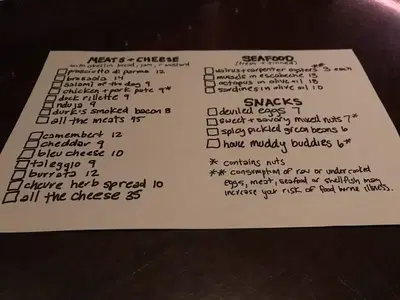 MEATS + CHEESE
with bread, jam, + mustard
prosciutto di parma 12
bresaola 14
salami of the day 9
chicken + pork pate 9*
duck rillette 9
nduja 9
durk's smoked bacon 8
all the meats 45
camembert 12
cheddar 9
bleu cheese 10
taleggio 9
burrata 12
chevre herb spread 10
all the cheese 35
SEAFOOD
(fresh + tinned)
walrus + carpenter oysters** 3 each
mussels in escabeche 13
octopus in olive oil 18
sardines in olive oil 10
SNACKS
deviled eggs 7
sweet + savory mixed nuts 7*
spicy pickled green beans 6
house muddy buddies 6*
* contains nuts
** consumption of raw or undercooked
eggs, meat, seafood or shellfish may
increase your risk of food borne illness.